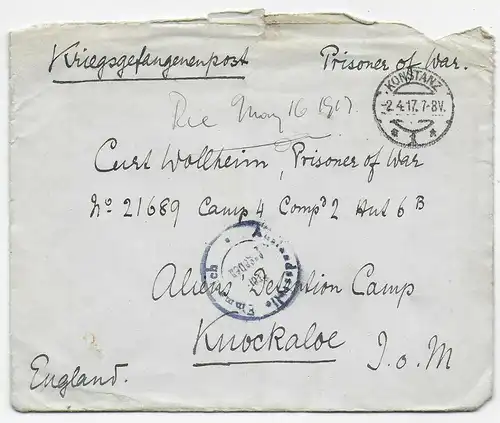 Kriegsgefangenenpost Prisoner of War.
KONSTANZ
-2.4.17.7-8V.
* 1 *
Rec May 16 1917.
Curt Wollheim, Prisoner of War
No 21689 Camp 4 Comp? 2 Hut 6B
Auslandsstelle Emmerich
Aliens Detention Camp
Knockaloe I.o.M
England.